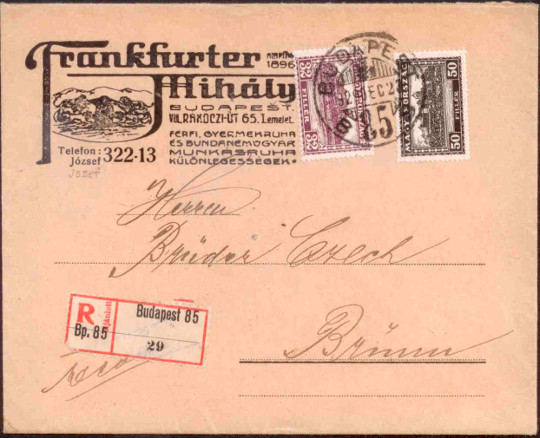 Frankfurter
1896
Mihály
BUDAPEST.
VIII. RÁKÓCZI-ÚT 65. I. emelet.
FÉRFI, GYERMEKRUHA
ÉS BUNDANEMŰGYÁR
MUNKÁSRUHA
KÜLÖNLEGESSÉGEK.
Telefon: József 322-13
József
BUDAPEST
32
FILLÉR
MAGYARORSZÁG
FILLÉR
50
50
Herren
Brüder Czech
Brünn
R
Ajánlott
Bp. 85
Budapest 85
29